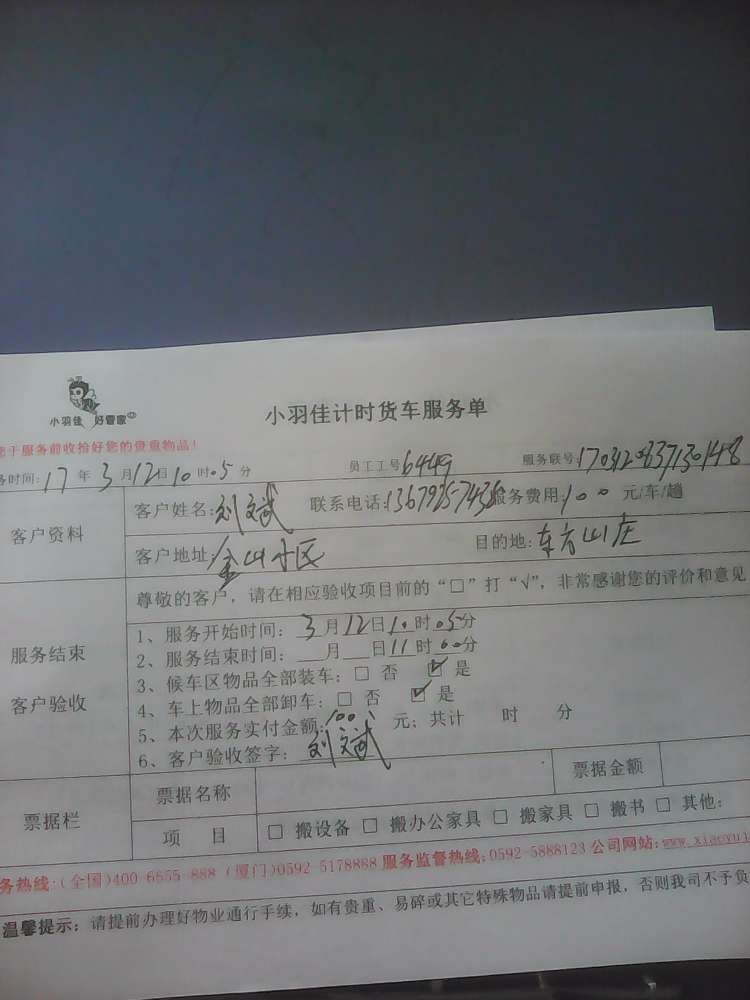 小羽佳 好管家
小羽佳计时货车服务单
于服务前收拾好您的贵重物品！
务时间：17年3月12日10时05分 员工工号6449 服务联号：
客户资料
客户姓名：刘文武 联系电话： 服务费用：100元/车/趟
客户地址：金山小区 目的地：东方山庄
服务结束
客户验收
尊敬的客户，请在相应验收项目前的“□”打“√”，非常感谢您的评价和意见
1、服务开始时间：3月12日10时05分
2、服务结束时间：___月___日11时00分
3、候车区物品全部装车：□ 否 ☑ 是
4、车上物品全部卸车：□ 否 ☑ 是
5、本次服务实付金额：100元；共计 时 分
6、客户验收签字：刘文武
票据栏
票据名称 票据金额
项 目 □ 搬设备 □ 搬办公家具 □ 搬家具 □ 搬书 □ 其他：
务热线：(全国)400-6655-888 (厦门)0592-5178888 服务监督热线：0592-5888123 公司网站：www.xiaoyuj
温馨提示：请提前办理好物业通行手续，如有贵重、易碎或其它特殊物品请提前申报，否则我司不予负